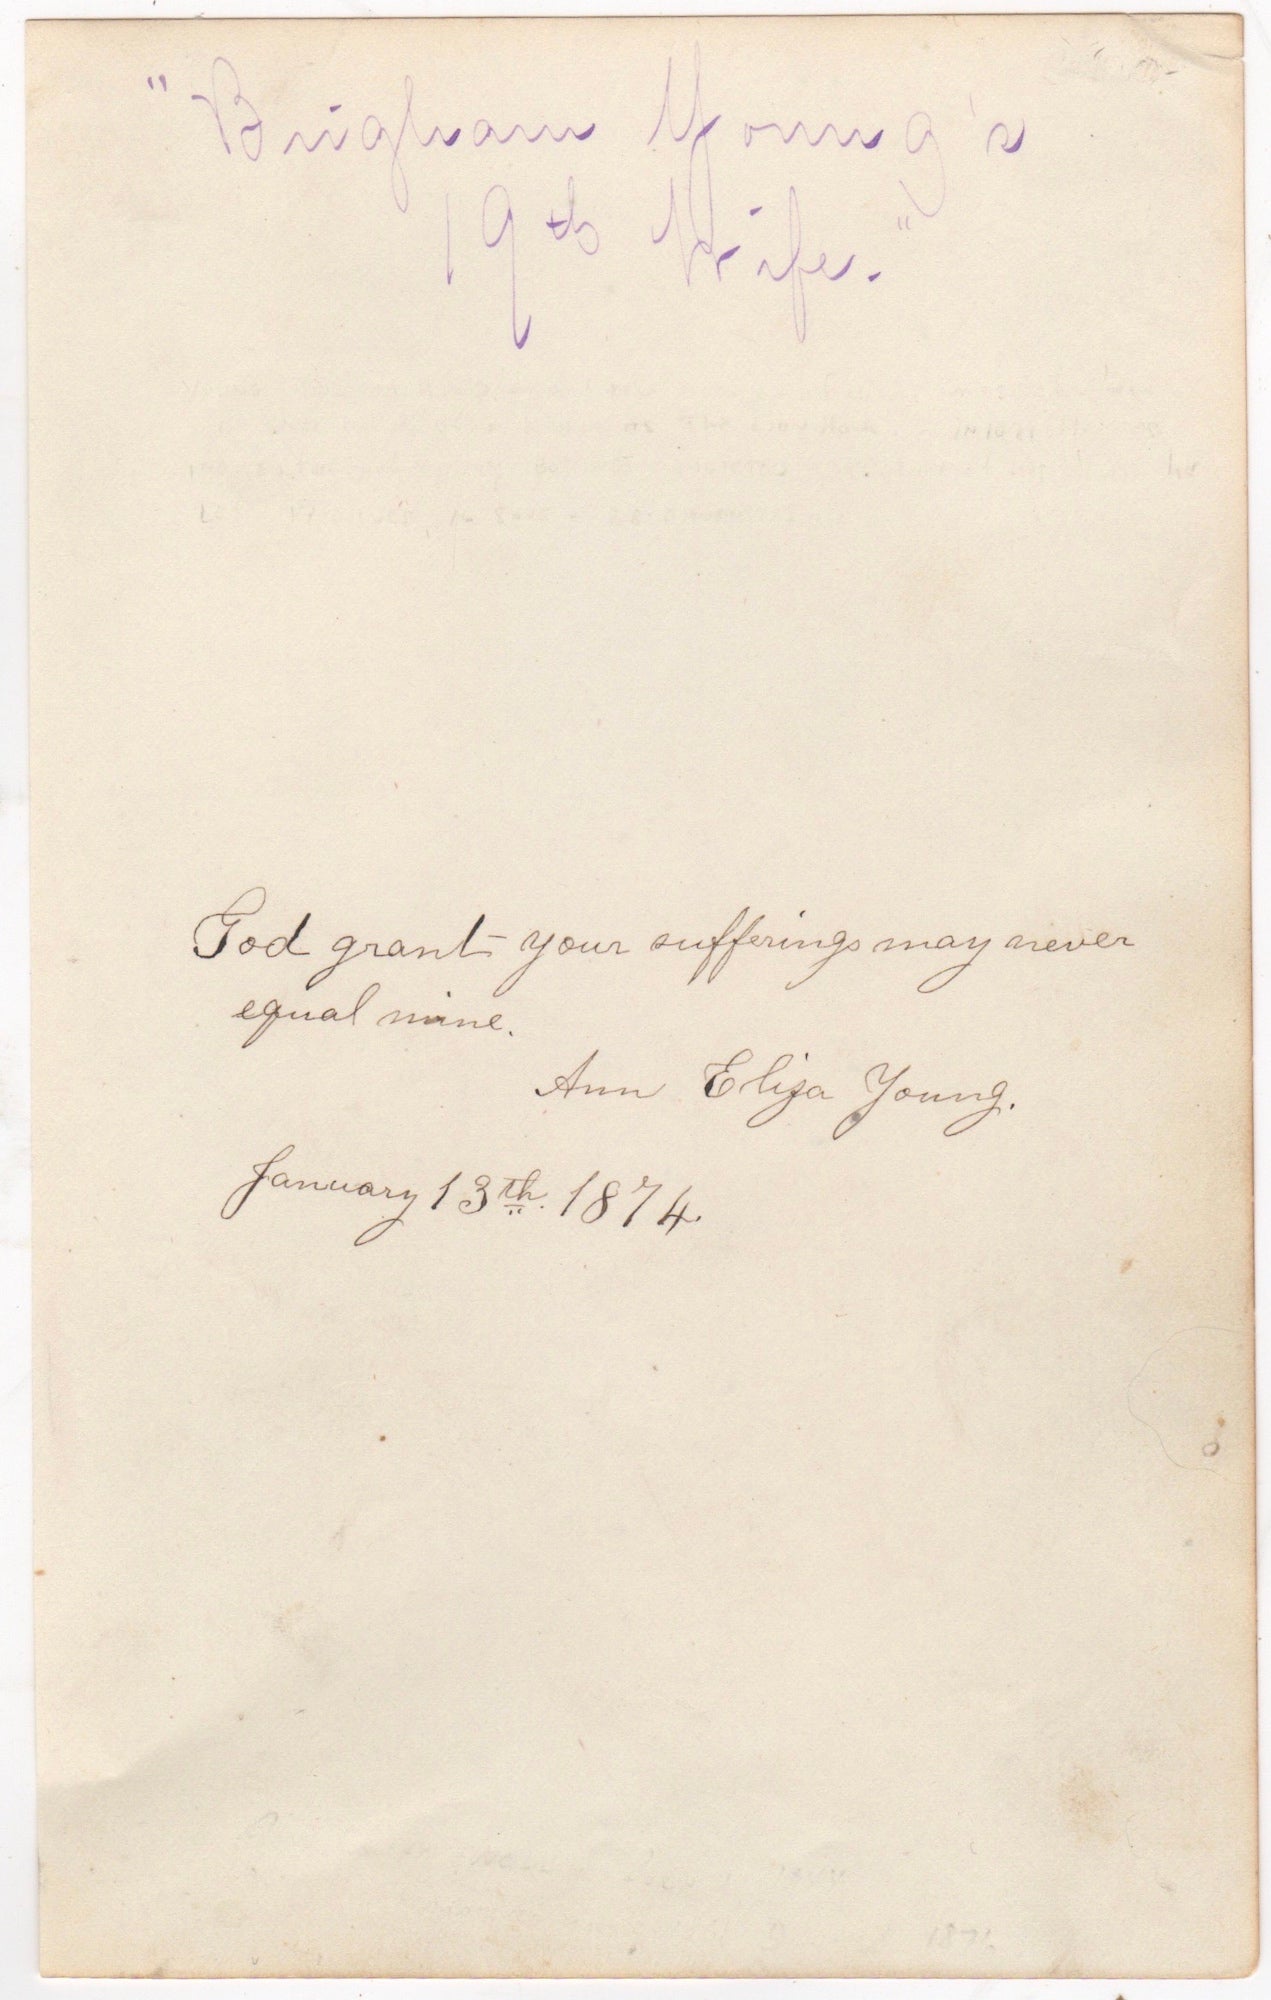 "Brigham Young's
19th Wife."
God grant your sufferings may never
equal mine.
Ann Eliza Young.
January 13th. 1874.